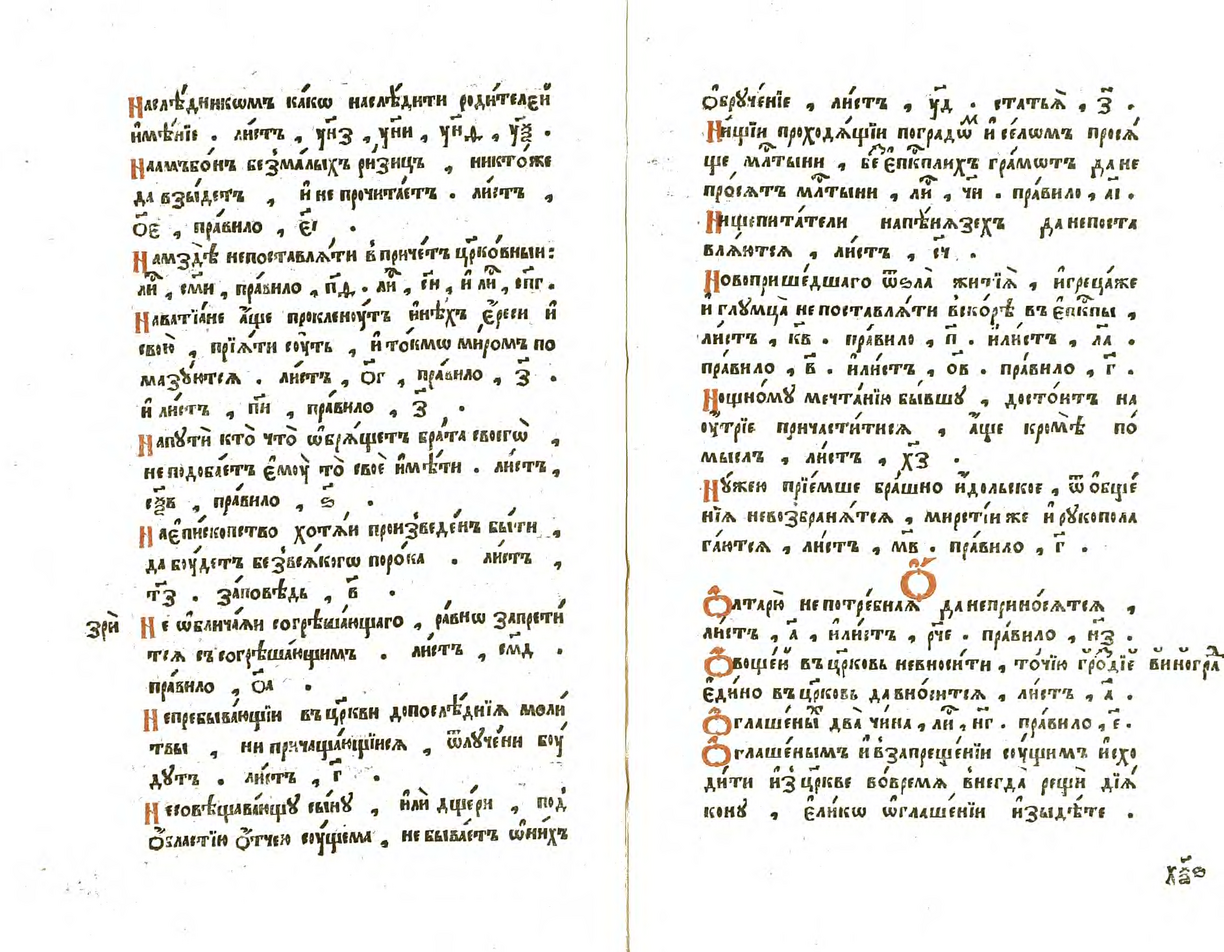 Наслѣ́дникѡмъ ка́кѡ наслѣ́дити роди́телей
и҆мѣ́нїе . ли́стъ , у҃нз , у҃ни , у҃нд , у҃ѯ .
Наамъво́нъ безма́лыхъ ри́зицъ , никто́же
да взы́детъ , и҆ не прочита́етъ . ли́стъ ,
о҃е , пра́вило , є҃і .
Намздѣ̀ непоставлѧ́ти в̾ при́четъ цр҃ко́вныи :
ли , см҃и , пра́вило , п҃д . ли , с҃н , и҆ ли , сп҃г .
Наватїа́не а҆́ще проклену́тъ и҆нѣ́хъ є҆́реси и҆
свою̀ , прїѧ́ти сꙋ́ть , и҆ то́кмѡ мѵ́ромъ по
ма́зꙋютсѧ . ли́стъ , о҃г , пра́вило , з҃ .
и҆ ли́стъ , п҃и , пра́вило , з҃ .
Напꙋтѝ кто̀ что̀ ѡ҆брѧ́щетъ бра́та своегѡ̀ ,
не подоба́етъ є҆мꙋ̀ то̀ своѐ и҆мѣ́ти . ли́стъ ,
сѯ҃в , пра́вило , ѕ҃ .
Нає҆пи́скопство хотѧ́й произведе́нъ бы́ти ,
да бꙋ́детъ безвсѧ́когѡ поро́ка . ли́стъ ,
т҃з . за́повѣдь , в҃ .
зрѝ
Не ѡ҆блича́ѧй согрѣша́ющаго , ра́внѡ запрети́
тсѧ съ согрѣша́ющимъ . ли́стъ , см҃д .
пра́вило , о҃а .
Непребыва́ющїи въ цр҃кви допослѣ́днїѧ моли́
твы , ни причаща́ющїисѧ , ѿлꙋ́чени бꙋ́
дꙋтъ . ли́стъ , г҃ .
Несовѣщава́ющꙋ сы́нꙋ , и҆лѝ дще́ри , под̾
ѻ҆́бластїю ѻ҆́тчею сꙋ́щема , не быва́етъ ѡ҆ ни́хъ
ѻ҆брꙋче́нїе , ли́стъ , у҃д . статьѧ̀ , з҃ .
Ни́щїи проходѧ́щїи погра́дѡм и҆ се́лѡмъ просѧ́
ще мл҃тыни , бе є҆пкплихъ гра́мѡтъ да не
про́сѧтъ мл҃тыни , ли , ч҃и . пра́вило , а҃і .
Нищепита́тели напѣ́нѧзехъ да непоста
влѧ́ютсѧ , ли́стъ , с҃ч .
Новоприше́дшаго ѿѕла̀ житїѧ̀ , и҆грецаже
и҆ глꙋмца̀ не поставлѧ́ти вско́рѣ въ є҆пкпы ,
ли́стъ , к҃в . пра́вило , п҃ . и҆ли́стъ , л҃а .
пра́вило , в҃ . и҆ли́стъ , о҃в . пра́вило , г҃ .
Нощно́мꙋ мечта́нїю бы́вшꙋ , досто́итъ на
ꙋ҆́трїе причасти́тисѧ , а҆́ще кромѣ̀ по́
мыслъ , ли́стъ , х҃з .
Нꙋ́жею прїе́мше бра́шно и҆́дольское , ѿ ѻ҆бще́
нїѧ невозбранѧ́тсѧ , мирстїи же и҆ рꙋкопола
га́ютсѧ , ли́стъ , м҃в . пра́вило , г҃ .
Ѻ҆
Ѻ҆лтарю̀ не потре́бнаѧ да неприно́сѧтсѧ ,
ли́стъ , а҃ , и҆ли́стъ , рч҃е . пра́вило , н҃з .
Ѻ҆воще́й въ цр҃ковь невноси́ти , то́чїю гро́здїе вїногра
Є҆ди́но въ цр҃ковь да вно́ситсѧ , ли́стъ , а҃ .
Ѻ҆глаше́ны два̀ чи́на , ли , н҃г . пра́вило , є҃ .
Ѻ҆глаше́нымъ и҆ взапреще́нїи сꙋ́щимъ и҆схо
ди́ти и҆з̾ цр҃кве во́времѧ внегда̀ рещѝ дїѧ́
конꙋ , є҆ли́кѡ ѡ҆глаше́нїи и҆зыдѣ́те .